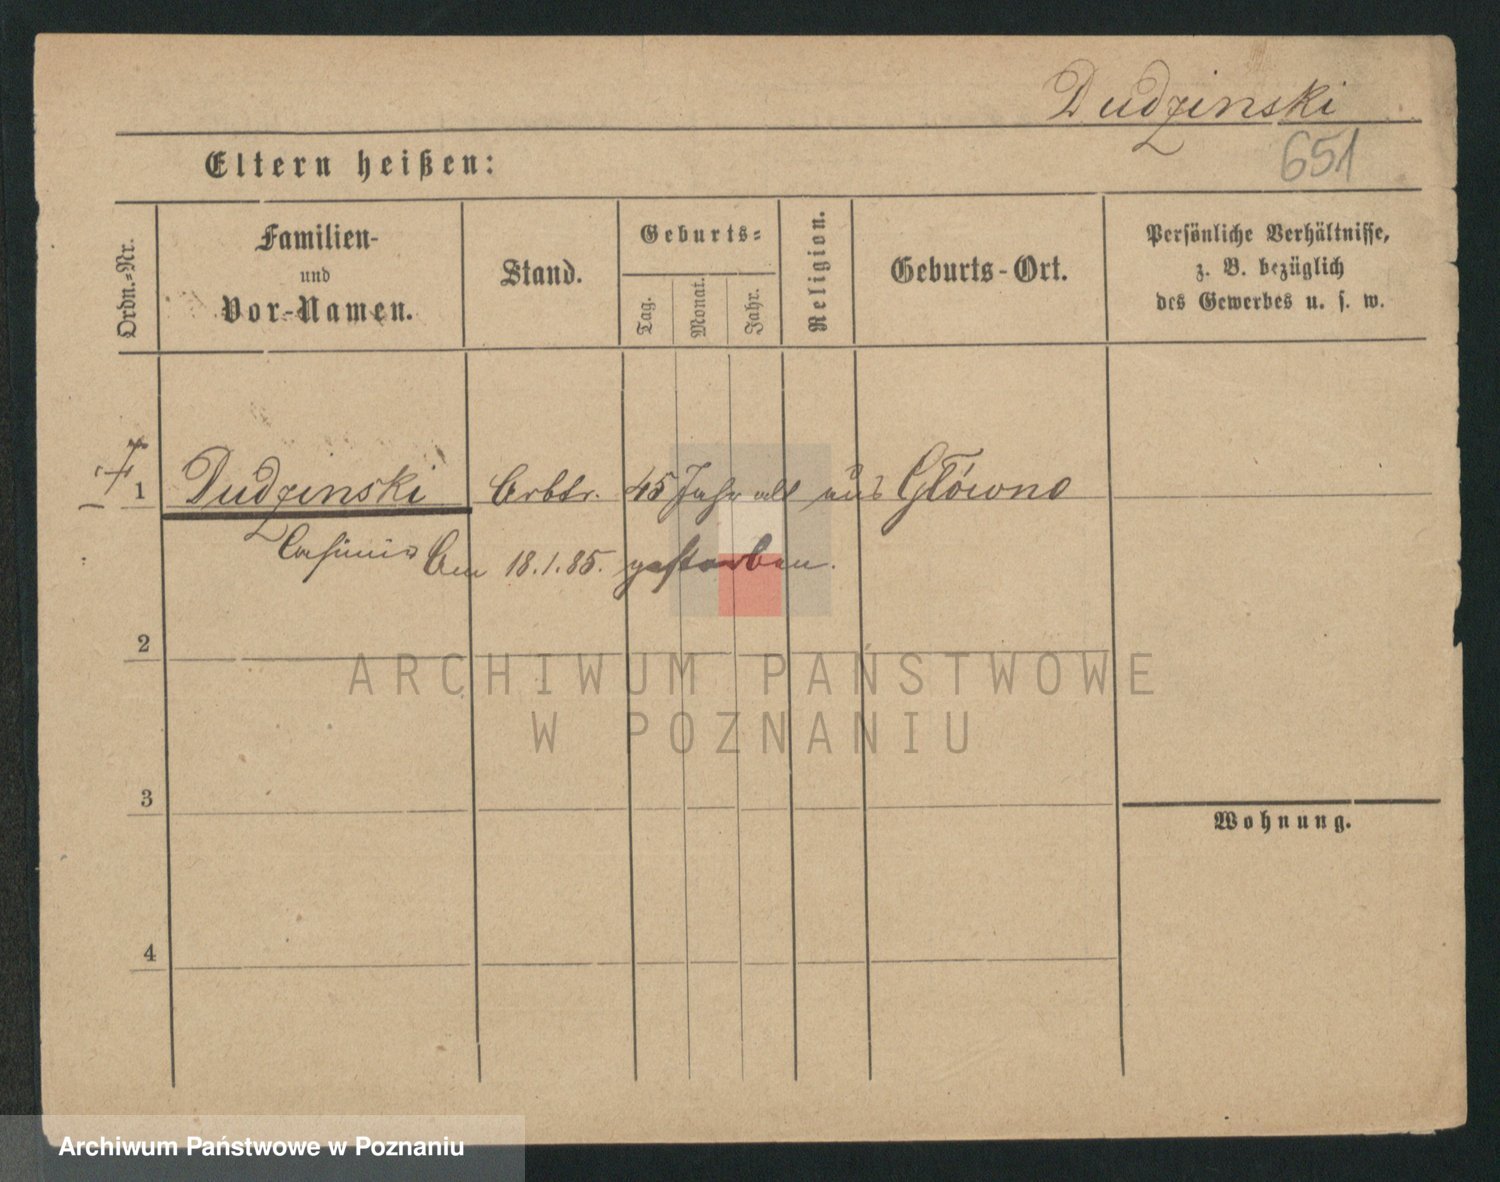 Dudzinski
651
Eltern heißen:
Ordn.-Nr.
Familien-
und
Vor-Namen.
Stand.
Geburts-
Tag.
Monat.
Jahr.
Religion.
Geburts-Ort.
Persönliche Verhältnisse,
z. B. bezüglich
des Gewerbes u. s. w.
1 Dudzinski Arbtr. 45 Jahr alt aus Główno
Casimir Am 18.1.85. gestorben.
2
ARCHIWUM PAŃSTWOWE
W POZNANIU
3
Wohnung.
4
Archiwum Państwowe w Poznaniu